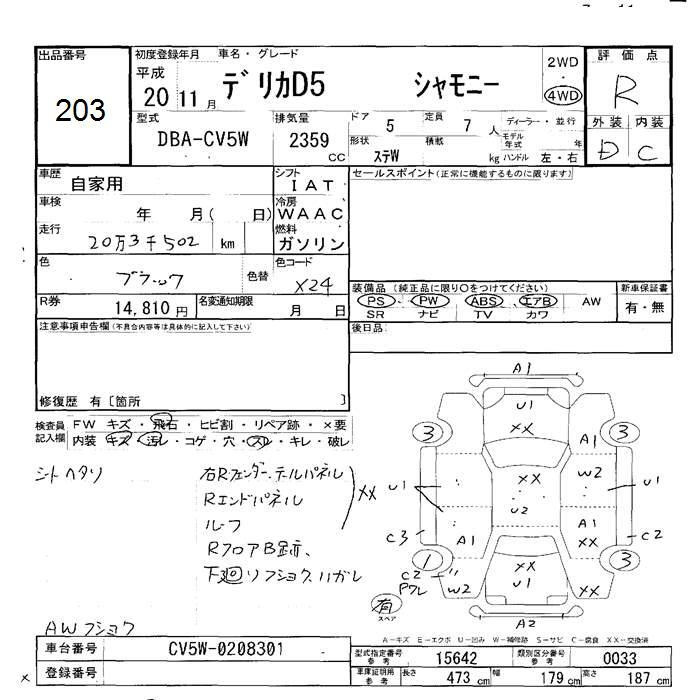 出品番号
203
初度登録年月 車名・グレード
平成 20 11 月
デリカD5 シャモニー
2WD
・
4WD
評価点
R
外装 内装
D C
型式
DBA-CV5W
排気量
2359 cc
ドア 5
定員 7 人
形状 ステW
積載 kg
ディーラー・並行
モデル年式 年
ハンドル 左・右
車歴 自家用
シフト IAT
車検 年 月( 日)
冷房 WAAC
走行 20万3千502 km
燃料 ガソリン
色 ブラック
色替
色コード X24
R券 14,810円
名変通知期限 月 日
セールスポイント(正常に機能するものに限ります)
装備品(純正品に限り○をつけてください)
PS・PW ABS・エアB AW
SR ナビ TV カワ
新車保証書
有・無
後日品
注意事項申告欄(不具合内容等は具体的に記入して下さい)
修復歴 有〔箇所 〕
検査員記入欄
FW キズ・飛石・ヒビ割・リペア跡・×要
内装・キズ・汚レ・コゲ・穴・スレ・キレ・破レ
シートヘタリ
右Rフェンダー、テールパネル
Rエンドパネル
ルーフ
XX
RフロアB跡、
下廻リフショク、ハガレ
AWフショク
A1
U1
XX
3 3
A1
U1
XX
W2
U1
U2
C3
A1
A1
XX
C2
1 3
C2
Pワレ
W2
XX
U1
XX
有
スペア
A2
A-キズ E-エクボ U-凹み W-補修跡 S-サビ C-腐食 XX-交換済
車台番号 CV5W-0208301
登録番号
型式指定番号 参考 15642
類別区分番号 参考 0033
車庫証明用 参考 長さ 473 cm 幅 179 cm 高さ 187 cm